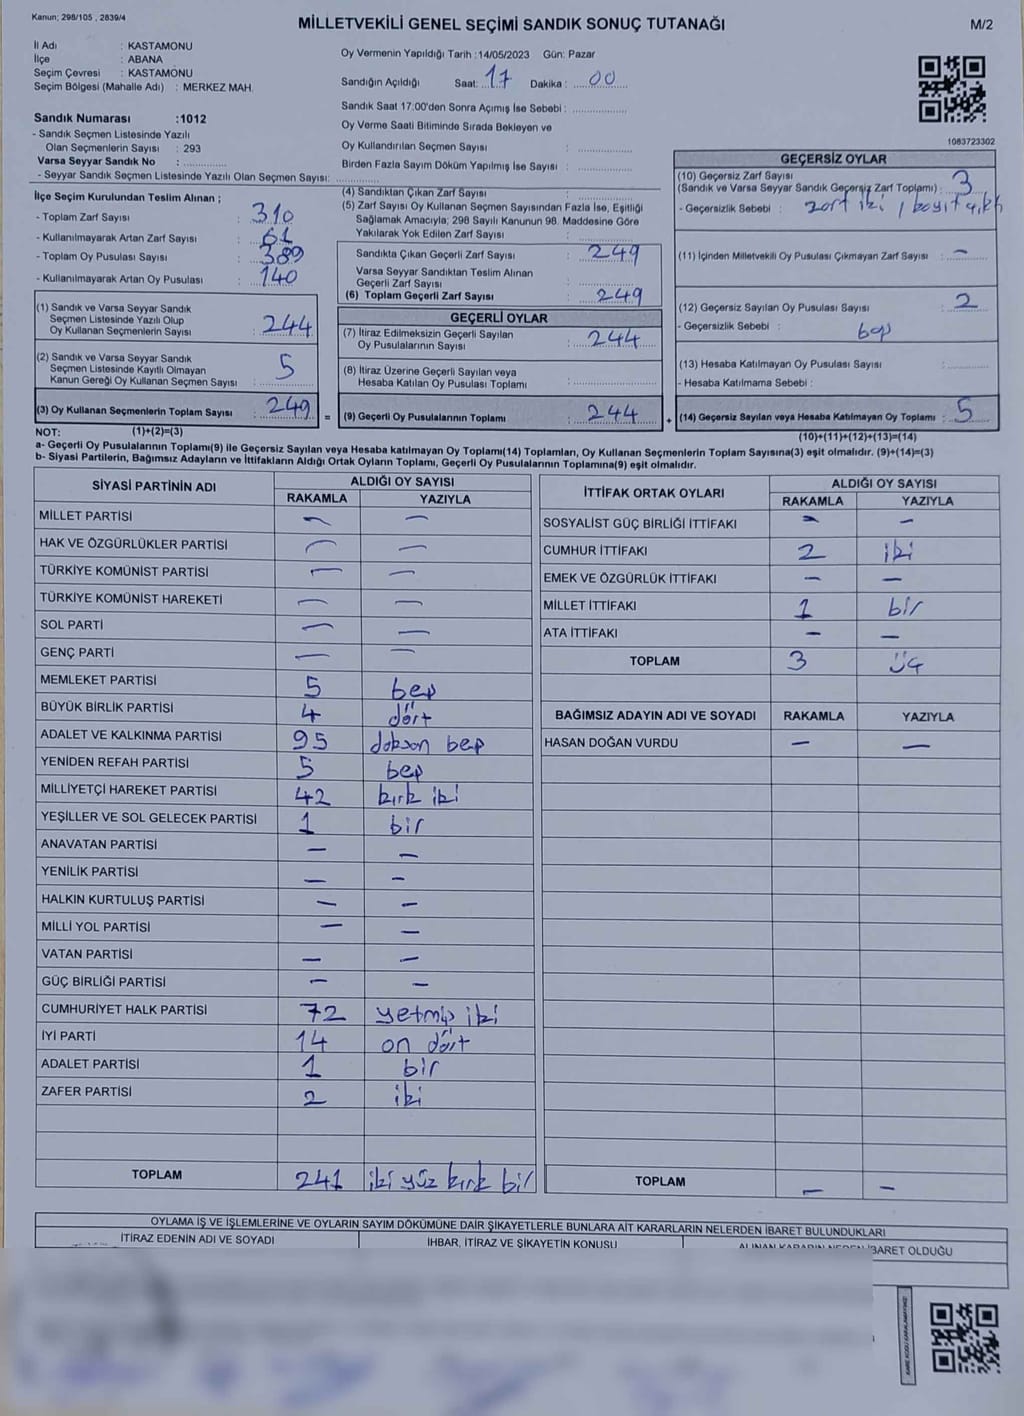 Kanun; 298/105 , 2839/4
MİLLETVEKİLİ GENEL SEÇİMİ SANDIK SONUÇ TUTANAĞI
M/2
İl Adı : KASTAMONU
İlçe : ABANA
Seçim Çevresi : KASTAMONU
Seçim Bölgesi (Mahalle Adı) : MERKEZ MAH.
Oy Vermenin Yapıldığı Tarih :14/05/2023 Gün: Pazar
Sandığın Açıldığı Saat: 17 Dakika : 00
Sandık Saat 17:00'den Sonra Açımış İse Sebebi :
Oy Verme Saati Bitiminde Sırada Bekleyen ve
Oy Kullandırılan Seçmen Sayısı :
Birden Fazla Sayım Döküm Yapılmış İse Sayısı :
1083723302
Sandık Numarası :1012
- Sandık Seçmen Listesinde Yazılı
Olan Seçmenlerin Sayısı : 293
Varsa Seyyar Sandık No :
- Seyyar Sandık Seçmen Listesinde Yazılı Olan Seçmen Sayısı:
İlçe Seçim Kurulundan Teslim Alınan ;
- Toplam Zarf Sayısı : 310
- Kullanılmayarak Artan Zarf Sayısı : 61
- Toplam Oy Pusulası Sayısı : 389
- Kullanılmayarak Artan Oy Pusulası : 140
(1) Sandık ve Varsa Seyyar Sandık
Seçmen Listesinde Yazılı Olup
Oy Kullanan Seçmenlerin Sayısı : 244
(2) Sandık ve Varsa Seyyar Sandık
Seçmen Listesinde Kayıtlı Olmayan
Kanun Gereği Oy Kullanan Seçmen Sayısı : 5
(3) Oy Kullanan Seçmenlerin Toplam Sayısı : 249
(1)+(2)=(3)
(4) Sandıktan Çıkan Zarf Sayısı :
(5) Zarf Sayısı Oy Kullanan Seçmen Sayısından Fazla İse, Eşitliği
Sağlamak Amacıyla; 298 Sayılı Kanunun 98. Maddesine Göre
Yakılarak Yok Edilen Zarf Sayısı :
Sandıkta Çıkan Geçerli Zarf Sayısı : 249
Varsa Seyyar Sandıktan Teslim Alınan
Geçerli Zarf Sayısı :
(6) Toplam Geçerli Zarf Sayısı : 249
GEÇERLİ OYLAR
(7) İtiraz Edilmeksizin Geçerli Sayılan
Oy Pusulalarının Sayısı : 244
(8) İtiraz Üzerine Geçerli Sayılan veya
Hesaba Katılan Oy Pusulası Toplamı :
= (9) Geçerli Oy Pusulalarının Toplamı : 244 +
GEÇERSİZ OYLAR
(10) Geçersiz Zarf Sayısı
(Sandık ve Varsa Seyyar Sandık Geçersiz Zarf Toplamı) : 3
- Geçersizlik Sebebi : iki
(11) İçinden Milletvekili Oy Pusulası Çıkmayan Zarf Sayısı : —
(12) Geçersiz Sayılan Oy Pusulası Sayısı : 2
- Geçersizlik Sebebi :
(13) Hesaba Katılmayan Oy Pusulası Sayısı :
- Hesaba Katılmama Sebebi :
(14) Geçersiz Sayılan veya Hesaba Katılmayan Oy Toplamı : 5
(10)+(11)+(12)+(13)=(14)
NOT:
a- Geçerli Oy Pusulalarının Toplamı(9) ile Geçersiz Sayılan veya Hesaba katılmayan Oy Toplamı(14) Toplamları, Oy Kullanan Seçmenlerin Toplam Sayısına(3) eşit olmalıdır. (9)+(14)=(3)
b- Siyasi Partilerin, Bağımsız Adayların ve İttifakların Aldığı Ortak Oyların Toplamı, Geçerli Oy Pusulalarının Toplamına(9) eşit olmalıdır.
SİYASİ PARTİNİN ADI ALDIĞI OY SAYISI
RAKAMLA YAZIYLA
MİLLET PARTİSİ — —
HAK VE ÖZGÜRLÜKLER PARTİSİ — —
TÜRKİYE KOMÜNİST PARTİSİ — —
TÜRKİYE KOMÜNİST HAREKETİ — —
SOL PARTİ — —
GENÇ PARTİ — —
MEMLEKET PARTİSİ 5 beş
BÜYÜK BİRLİK PARTİSİ 4 dört
ADALET VE KALKINMA PARTİSİ 95 doksan beş
YENİDEN REFAH PARTİSİ 5 beş
MİLLİYETÇİ HAREKET PARTİSİ 42 kırk iki
YEŞİLLER VE SOL GELECEK PARTİSİ 1 bir
ANAVATAN PARTİSİ — —
YENİLİK PARTİSİ — —
HALKIN KURTULUŞ PARTİSİ — —
MİLLİ YOL PARTİSİ — —
VATAN PARTİSİ — —
GÜÇ BİRLİĞİ PARTİSİ — —
CUMHURİYET HALK PARTİSİ 72 yetmiş iki
İYİ PARTİ 14 on dört
ADALET PARTİSİ 1 bir
ZAFER PARTİSİ 2 iki
TOPLAM 241 iki yüz kırk bir
İTTİFAK ORTAK OYLARI ALDIĞI OY SAYISI
RAKAMLA YAZIYLA
SOSYALİST GÜÇ BİRLİĞİ İTTİFAKI — —
CUMHUR İTTİFAKI 2 iki
EMEK VE ÖZGÜRLÜK İTTİFAKI — —
MİLLET İTTİFAKI 1 bir
ATA İTTİFAKI — —
TOPLAM 3 üç
BAĞIMSIZ ADAYIN ADI VE SOYADI RAKAMLA YAZIYLA
HASAN DOĞAN VURDU — —
TOPLAM — —
OYLAMA İŞ VE İŞLEMLERİNE VE OYLARIN SAYIM DÖKÜMÜNE DAİR ŞİKAYETLERLE BUNLARA AİT KARARLARIN NELERDEN İBARET BULUNDUKLARI
İTİRAZ EDENİN ADI VE SOYADI İHBAR, İTİRAZ VE ŞİKAYETİN KONUSU ALINAN KARARIN NEDEN İBARET OLDUĞU